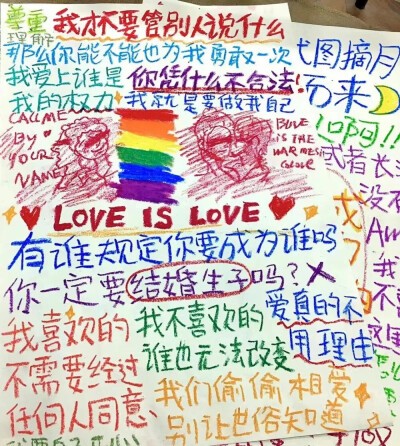 尊重
理解
我才不要管别人说什么
那么你能不能也为我勇敢一次
我爱上谁是
我的权力
你凭什么不合法!
我就是要做我自己
弋图摘月
而来
CALL ME
BY
YOUR
NAME
BLUE
IS THE
WARMEST
COLOR
LOVE IS LOVE
或者长
没有
有谁规定你要成为谁吗
你一定要结婚生子吗?
我喜欢的
不需要经过
任何人同意
我不喜欢的
谁也无法改变
爱真的不
用理由
我们偷偷相爱
别让世俗知道